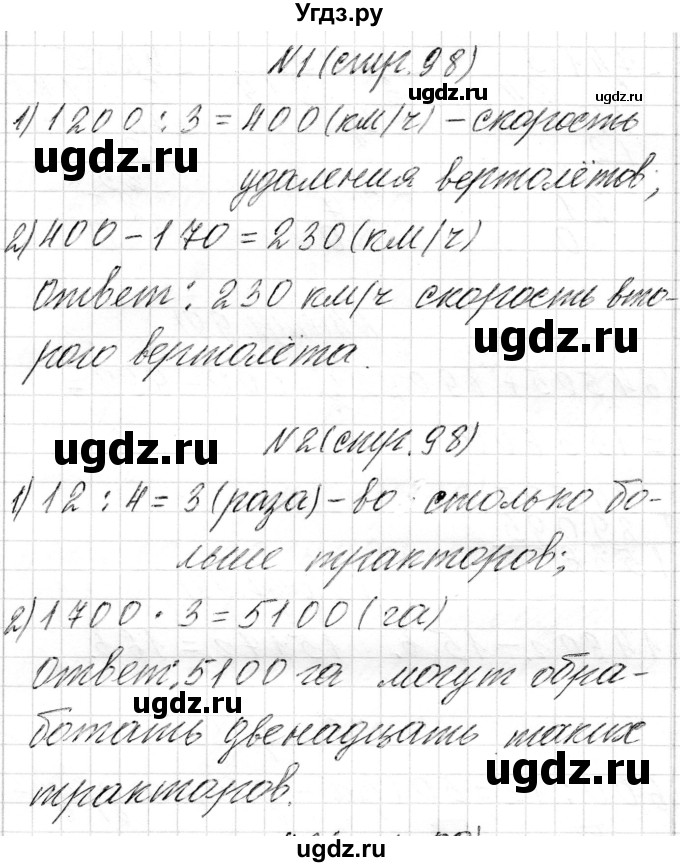 Угдз.ру
№1 (стр. 98)
ugdz.ru
ugdz.ru
1) 1200 : 3 = 400 (км/ч) – скорость
ugdz.ru
удаления вертолётов;
2) 400 – 170 = 230 (км/ч)
Ответ: 230 км/ч скорость вто-
ugdz.ru
рого вертолёта.
№2 (стр. 98)
ugdz.ru
ugdz.ru
1) 12 : 4 = 3 (раза) – во столько бо-
льше тракторов;
2) 1700 · 3 = 5100 (га)
Ответ: 5100 га могут обра-
ugdz.ru
ботать двенадцать таких
ugdz.ru
тракторов.
ugdz.ru